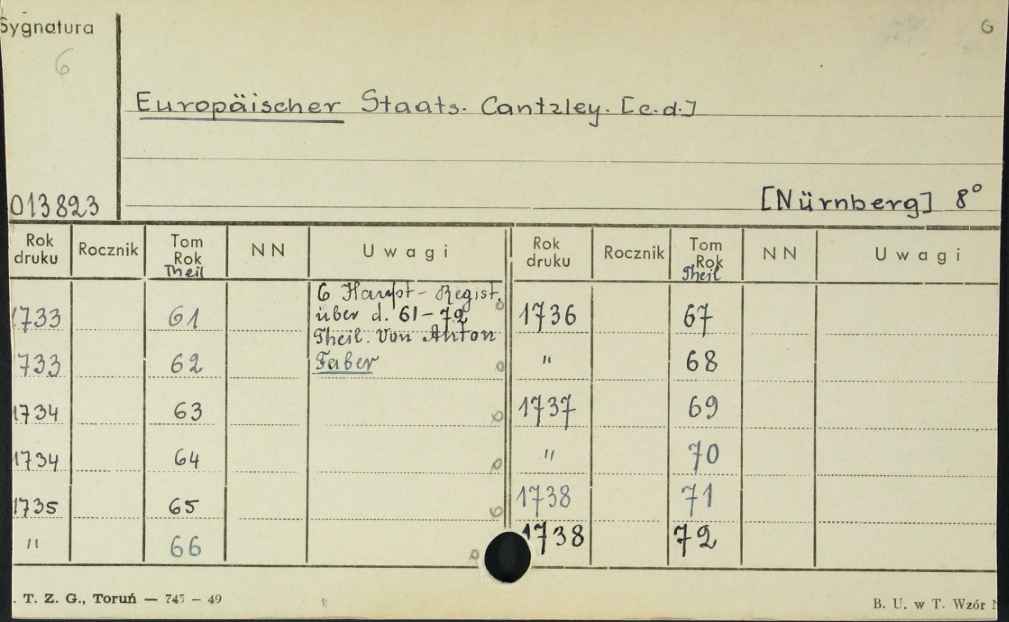 Sygnatura
6
6
Europäischer Staats. Cantzley. [c.d.]
013823
[Nürnberg] 8°
Rok druku Rocznik Tom Rok Theil NN Uwagi Rok druku Rocznik Tom Rok Theil NN Uwagi
6 Haupt-Regist.
1733 61 über d. 61-72 1736 67
Theil. Von Anton
733 62 Faber " 68
1734 63 1737 69
1734 64 " 70
1735 65 1738 71
" 66 1738 72
. T. Z. G., Toruń — 747 — 49
B. U. w T. Wzór